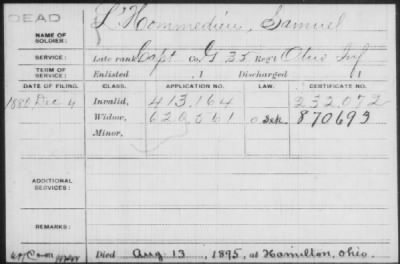 DEAD
NAME OF SOLDIER: L'Hommedieu, Samuel
SERVICE: Late rank Capt Co. G 35 Reg't Ohio Inf
TERM OF SERVICE: Enlisted , 1 Discharged , 1
DATE OF FILING. CLASS. APPLICATION NO. LAW. CERTIFICATE NO.
1880 Dec 4 Invalid, 413.164 232.072
Widow, 620.561 870693
Minor,
ADDITIONAL SERVICES:
REMARKS:
Died Aug 13, 1895, at Hamilton, Ohio.